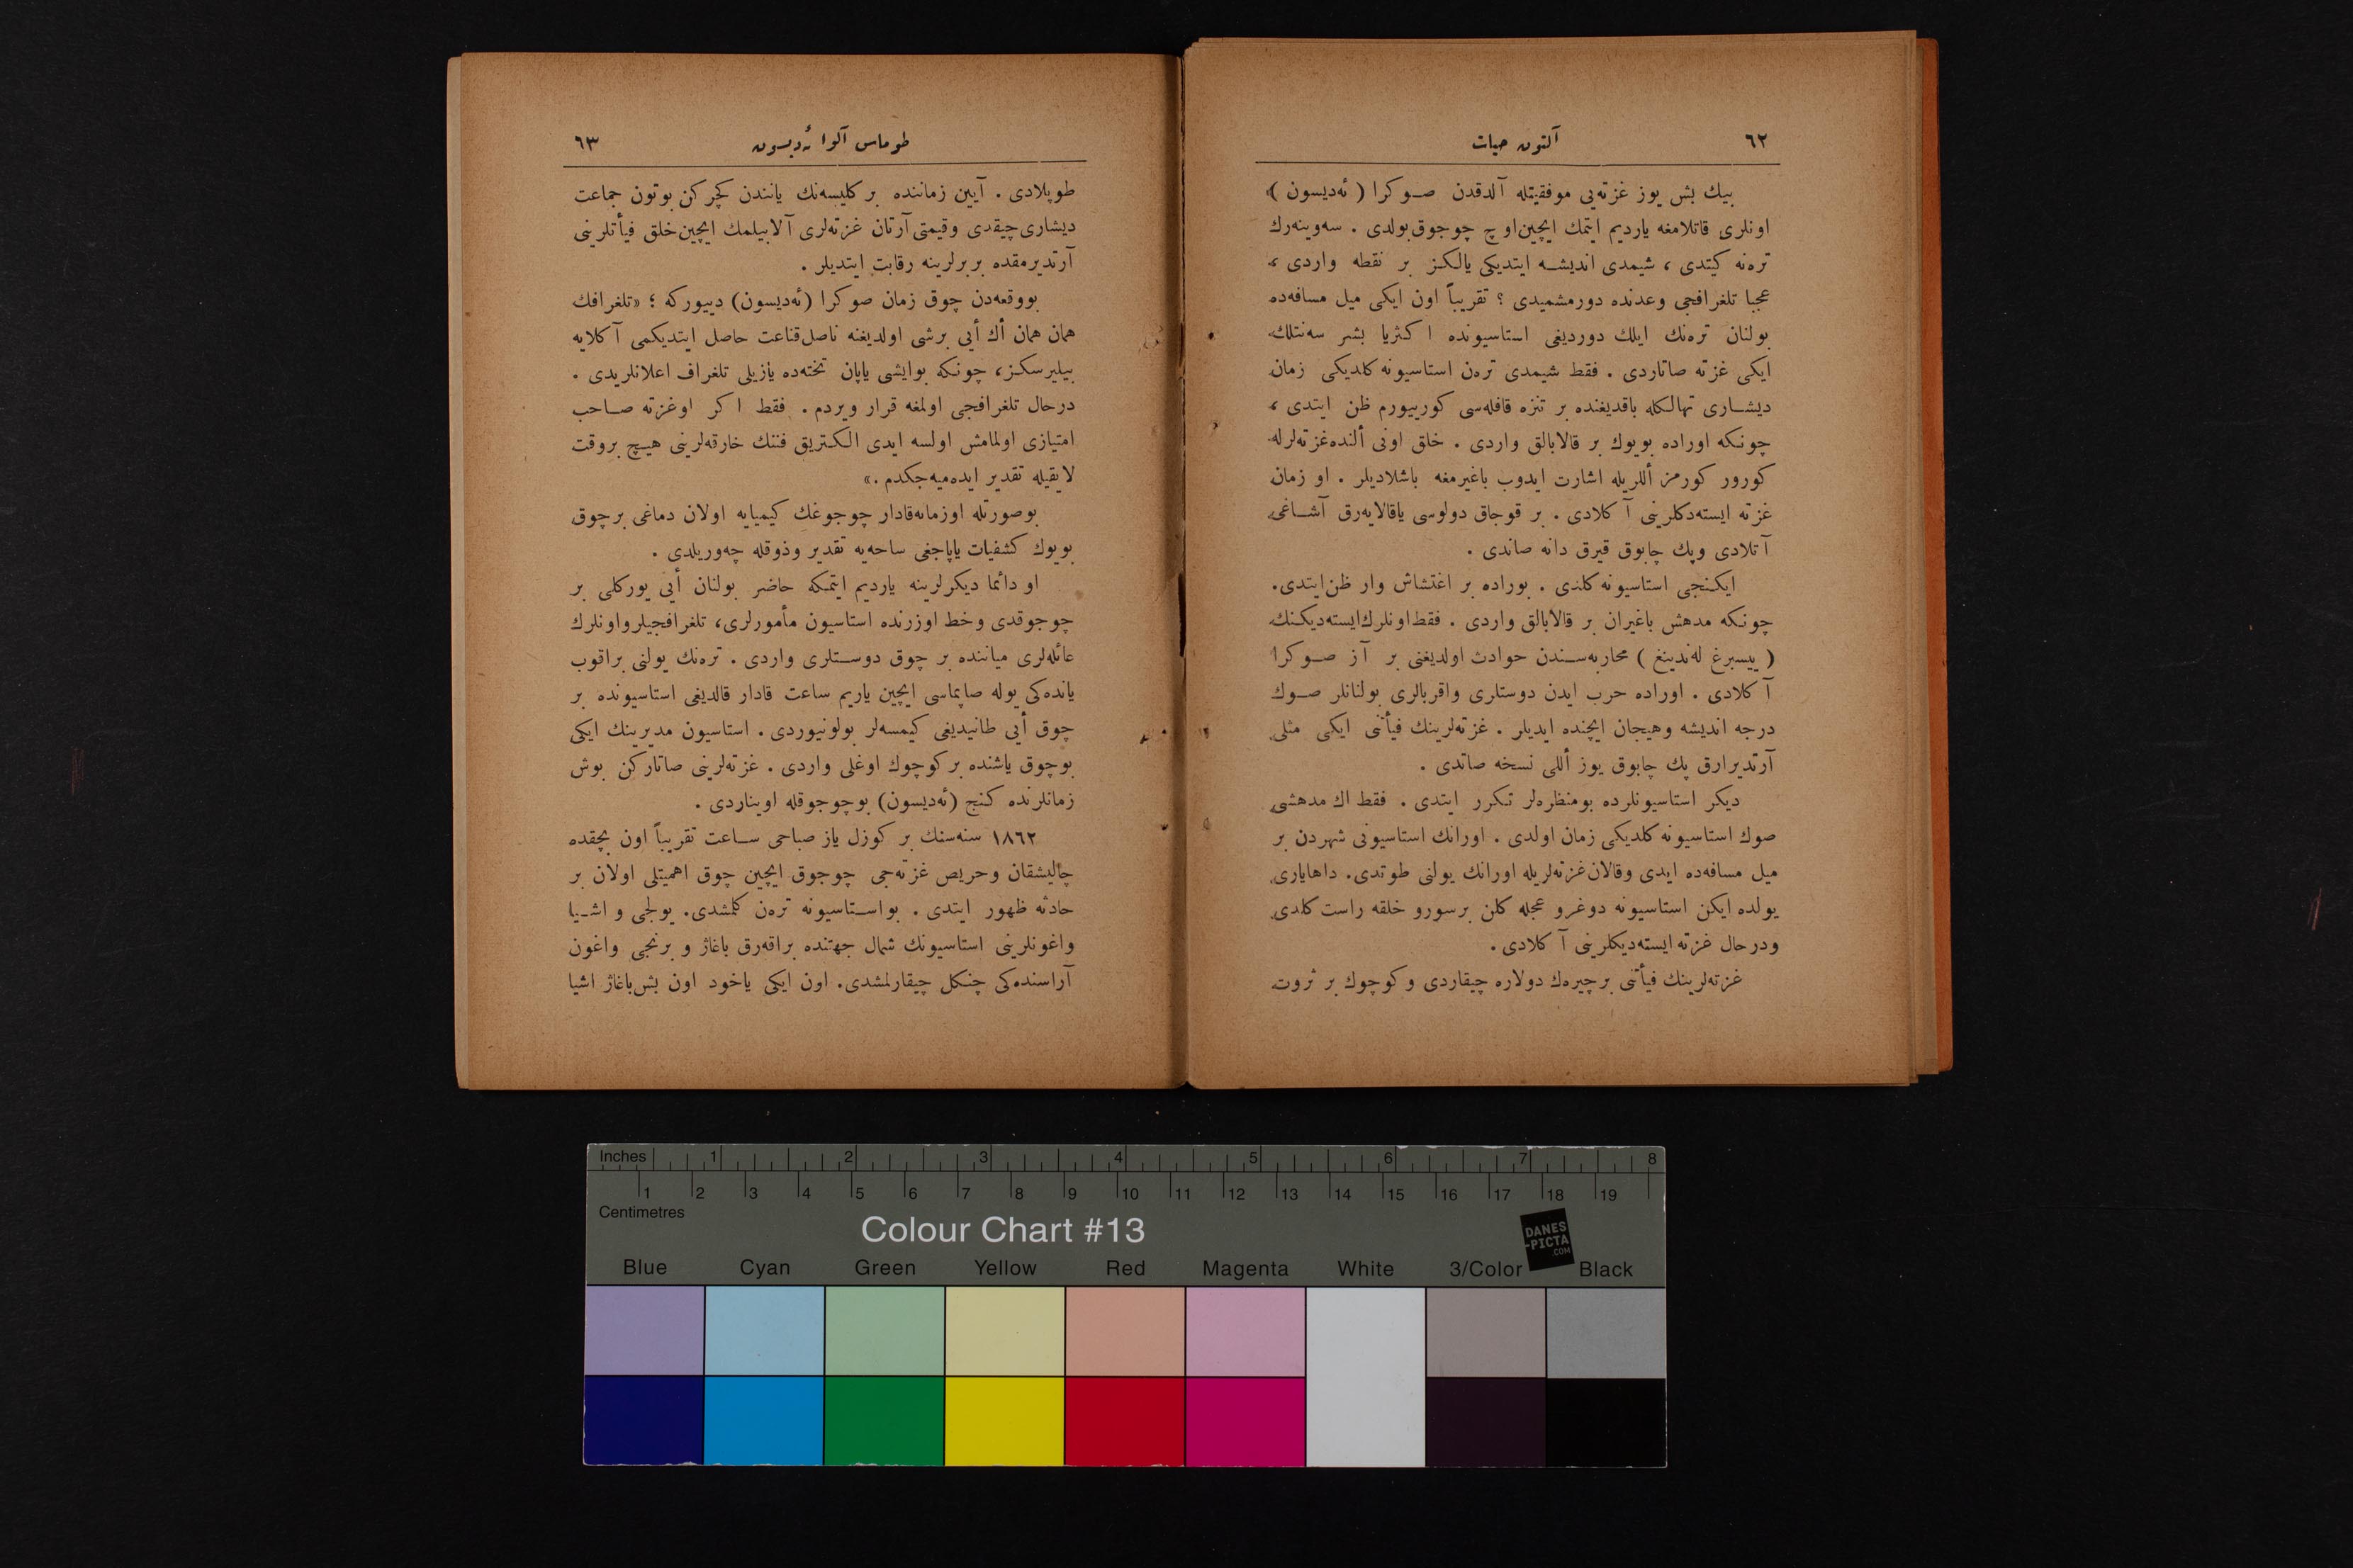 ٦٢
آلتون حیات
بيك بش يوز غزته‌يی موفقيتله آلدقدن صوكرا ( ئه‌ديسون )
اونلری قاتلامغه يارديم ايتمك ايچين اوچ چوجوق بولدی . سه‌وينه‌رك
تره‌نه كيتدی ، شيمدی انديشه ايتديكی يالكز بر نقطه واردی ،
عجبا تلغرافجی وعدنده دورمشميدی ؟ تقريباً اون ايكی ميل مسافه‌ده
بولنان تره‌نك ايلك دورديغی استاسيونده اكثريا بشر سه‌نتلك
ايكی غزته صاتاردی . فقط شيمدی تره‌ن استاسيونه كلديكی زمان
ديشاری تهالكله باقديغنده بر تنزه قافله‌سی كورييورم ظن ايتدی ،
چونكه اوراده بويوك بر قالابالق واردی . خلق اونی ألنده غزته‌لرله
كورور كورمز أللريله اشارت ايدوب باغيرمغه باشلاديلر . او زمان
غزته ايسته‌دكلرينی آكلادی . بر قوجاق دولوسی ياقالايه‌رق آشاغی
آتلادی وپك چابوق قيرق دانه صاندی .
ايكنجی استاسيونه كلدی . بوراده بر اغتشاش وار ظن ايتدی.
چونكه مدهش باغيران بر قالابالق واردی . فقط اونلرك ايسته‌ديكنك
( پيسبرغ له‌ندينغ ) محاربه‌سندن حوادث اولديغنی بر آز صوكرا
آكلادی . اوراده حرب ايدن دوستلری واقربالری بولنانلر صوك
درجه انديشه وهيجان ايچنده ايديلر . غزته‌لرينك فيأتنی ايكی مثلی
آرتديرارق پك چابوق يوز أللی نسخه صاتدی .
ديكر استاسيونلرده بومنظره‌لر تكرر ايتدی . فقط اك مدهشی
صوك استاسيونه كلديكی زمان اولدی . اورانك استاسيونی شهردن بر
ميل مسافه‌ده ايدی وقالان غزته‌لريله اورانك يولنی طوتدی. داها‌ياری
يولده ايكن استاسيونه دوغرو عجله كلن برسورو خلقه راست كلدی
ودرحال غزته ايسته‌ديكلرينی آكلادی .
غزته‌لرينك فيأتنی برچيره‌ك دولاره چيقاردی وكوچوك بر ثروت
طوماس آلوا ئه‌ديسون
٦٣
طوپلادی . آيين زماننده بر كليسه‌نك يانندن كچركن بوتون جماعت
ديشاری چيقدی وقيمتی آرتان غزته‌لری آلابيلمك ايچين خلق فيأتلرينی
آرتديرمقده بربرلرينه رقابت ايتديلر .
بووقعه‌دن چوق زمان صوكرا (ئه‌ديسون) دييوركه ؛ «تلغرافك
همان همان أك أيی برشی اولديغنه ناصل قناعت حاصل ايتديكمی آكلايه
بيليرسكز، چونكه بوايشی ياپان تخته‌ده يازيلی تلغراف اعلانلريدی .
درحال تلغرافجی اولمغه قرار ويردم . فقط اكر اوغزته صاحب
امتيازی اولمامش اولسه ايدی الكتريق فننك خارقه‌لرينی هيچ بروقت
لايقيله تقدير ايده‌ميه‌جكدم .»
بوصورتله اوزمانه‌قادار چوجوغك كيميايه اولان دماغی برچوق
بويوك كشفيات ياپاجغی ساحه‌يه تقدير وذوقله چه‌وريلدی .
او دائما ديكرلرينه يارديم ايتمكه حاضر بولنان أيی يوركلی بر
چوجوقدی وخط اوزرنده استاسيون مأمورلری، تلغرافجيلر واونلرك
عائله‌لری مياننده بر چوق دوستلری واردی . تره‌نك يولنی براقوب
يانده‌كی يوله صاپماسی ايچين ياريم ساعت قادار قالديغی استاسيونده بر
چوق أيی طانيديغی كيمسه‌لر بولونيوردی . استاسيون مديرينك ايكی
بوچوق ياشنده بر كوچوك اوغلی واردی . غزته‌لرينی صاتاركن بوش
زمانلرنده كنج (ئه‌ديسون) بوچوجوقله اويناردی .
١٨٦٢ سنه‌سنك بر كوزل ياز صباحی ساعت تقريباً اون بچقده
چاليشقان وحريص غزته‌جی چوجوق ايچين چوق اهميتلی اولان بر
حادثه ظهور ايتدی . بواستاسيونه تره‌ن كلمشدی. يولجی و اشيا
واغونلرينی استاسيونك شمال جهتنده براقه‌رق باغاژ و برنجی واغون
آراسنده‌كی چنكل چيقارلمشدی. اون ايكی ياخود اون بش باغاژ اشيا
Inches 1 2 3 4 5 6 7 8
1 2 3 4 5 6 7 8 9 10 11 12 13 14 15 16 17 18 19
Centimetres
Colour Chart #13
DANES
-PICTA
.COM
Blue Cyan Green Yellow Red Magenta White 3/Color Black